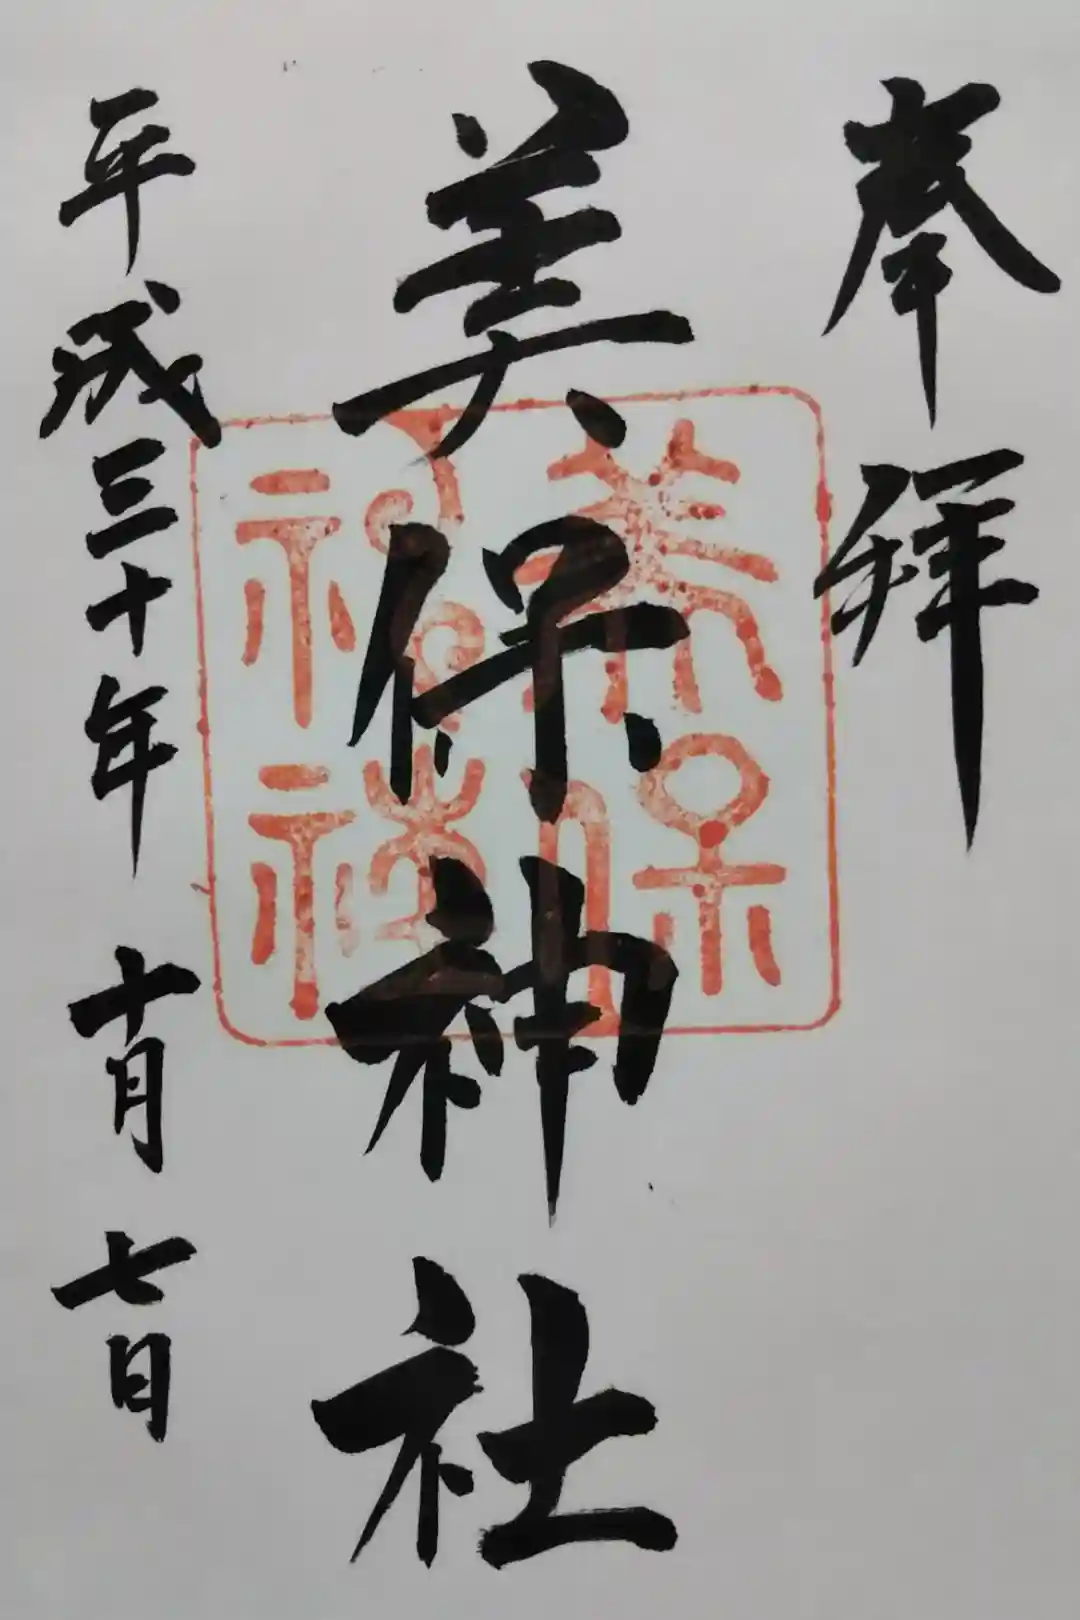 奉拝
美保神社
平成三十年十月七日
美保